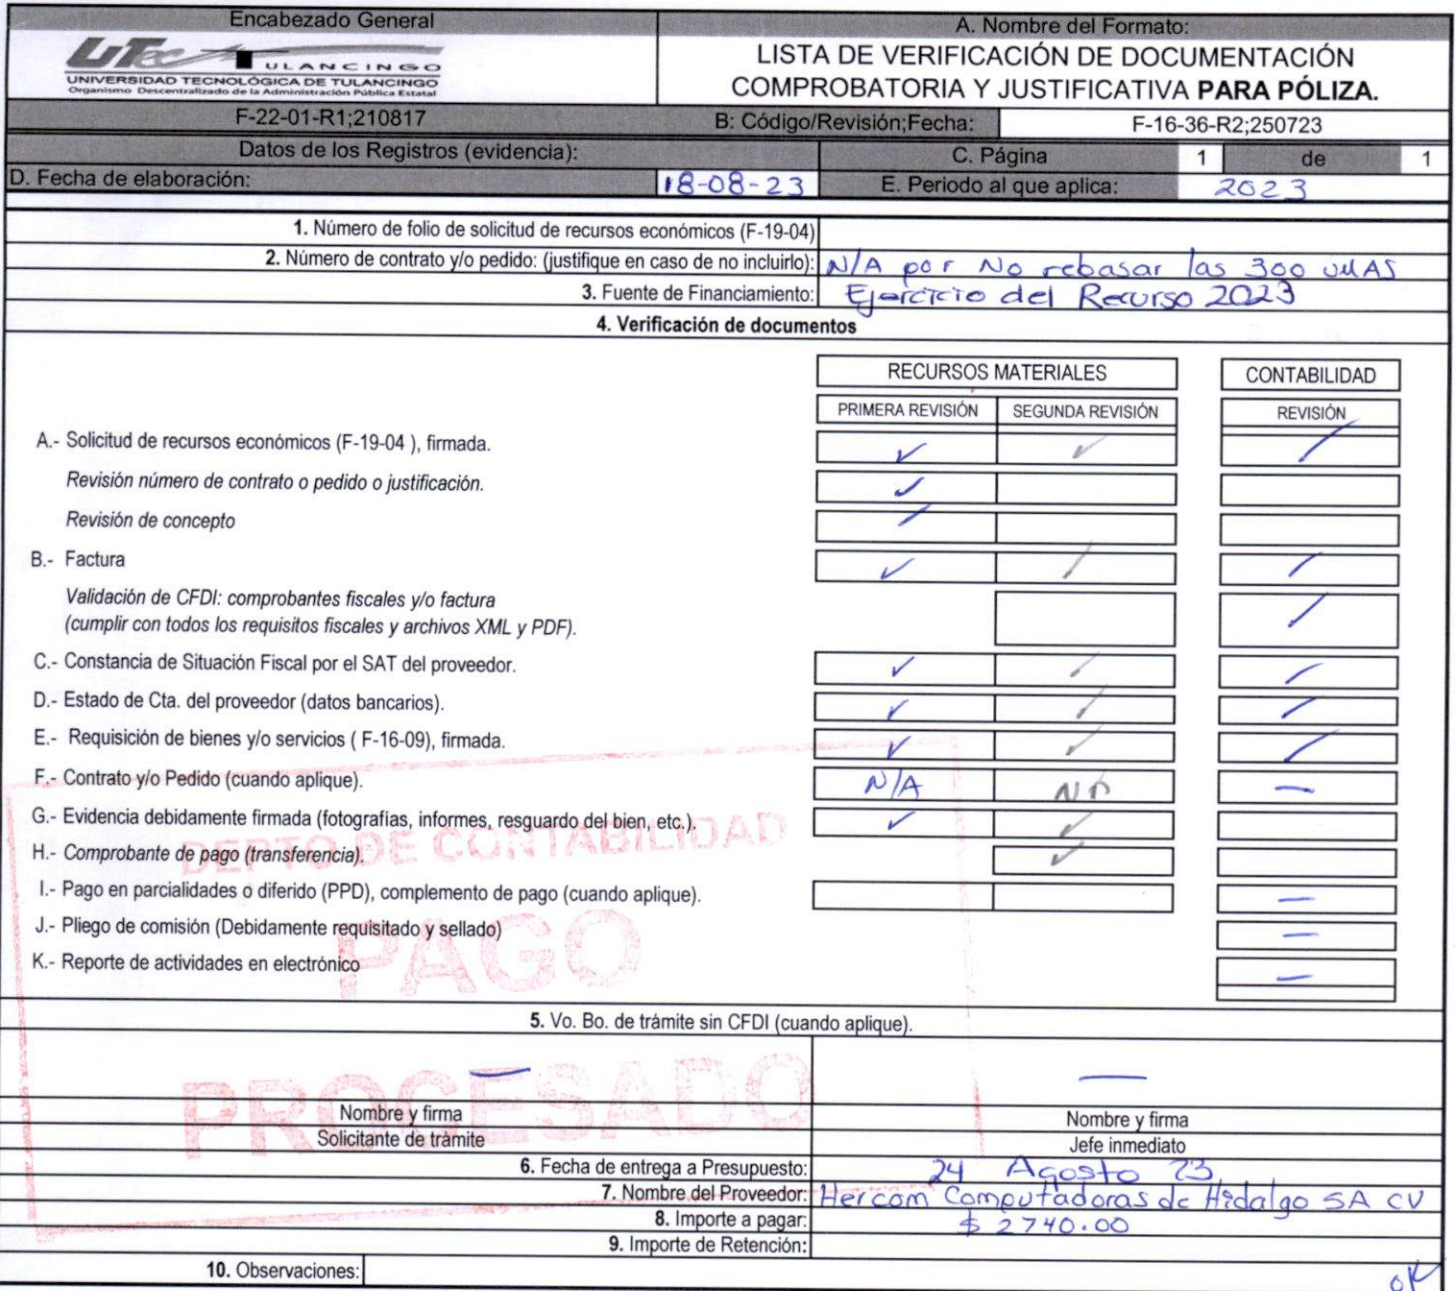 Encabezado General
A. Nombre del Formato:
UTec TULANCINGO
UNIVERSIDAD TECNOLÓGICA DE TULANCINGO
Organismo Descentralizado de la Administración Pública Estatal
LISTA DE VERIFICACIÓN DE DOCUMENTACIÓN
COMPROBATORIA Y JUSTIFICATIVA PARA PÓLIZA.
F-22-01-R1;210817
B: Código/Revisión;Fecha:
F-16-36-R2;250723
Datos de los Registros (evidencia):
C. Página 1 de 1
D. Fecha de elaboración: 18-08-23
E. Periodo al que aplica: 2023
1. Número de folio de solicitud de recursos económicos (F-19-04)
2. Número de contrato y/o pedido: (justifique en caso de no incluirlo): N/A por No rebasar las 300 UMAS
3. Fuente de Financiamiento: Ejercicio del Recurso 2023
4. Verificación de documentos
RECURSOS MATERIALES
CONTABILIDAD
PRIMERA REVISIÓN
SEGUNDA REVISIÓN
REVISIÓN
A.- Solicitud de recursos económicos (F-19-04 ), firmada. ✓ ✓ ✓
Revisión número de contrato o pedido o justificación. ✓
Revisión de concepto ✓
B.- Factura ✓ ✓ ✓
Validación de CFDI: comprobantes fiscales y/o factura
(cumplir con todos los requisitos fiscales y archivos XML y PDF). ✓
C.- Constancia de Situación Fiscal por el SAT del proveedor. ✓ ✓ ✓
D.- Estado de Cta. del proveedor (datos bancarios). ✓ ✓ ✓
E.- Requisición de bienes y/o servicios ( F-16-09), firmada. ✓ ✓ ✓
F.- Contrato y/o Pedido (cuando aplique). N/A NA —
G.- Evidencia debidamente firmada (fotografías, informes, resguardo del bien, etc.). ✓ ✓
H.- Comprobante de pago (transferencia). ✓
I.- Pago en parcialidades o diferido (PPD), complemento de pago (cuando aplique). —
J.- Pliego de comisión (Debidamente requisitado y sellado) —
K.- Reporte de actividades en electrónico —
DEPTO DE CONTABILIDAD
PAGO
PROCESADO
5. Vo. Bo. de trámite sin CFDI (cuando aplique).
— —
Nombre y firma
Solicitante de trámite
Nombre y firma
Jefe inmediato
6. Fecha de entrega a Presupuesto: 24 Agosto 23
7. Nombre del Proveedor: Hercom Computadoras de Hidalgo SA CV
8. Importe a pagar: $ 2740.00
9. Importe de Retención:
10. Observaciones:
OK